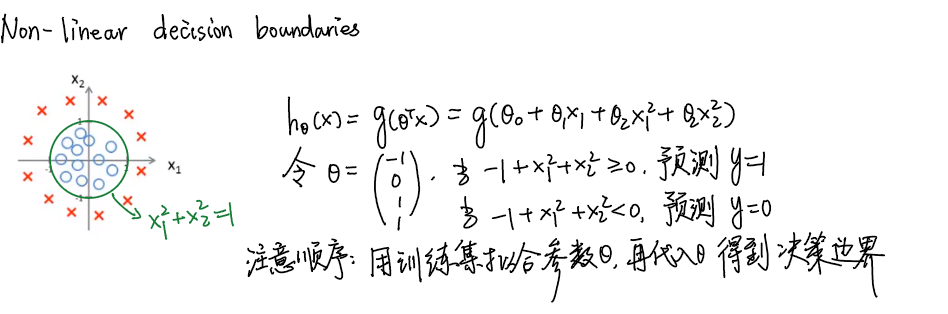 Non-linear decision boundaries
x₂
1
-1
1
x₁
-1
x₁²+x₂²=1
h_θ(x) = g(θᵀx) = g(θ₀+θ₁x₁+θ₂x₁²+θ₂x₂²)
令 θ = (-1 0 1 1), 当 -1+x₁²+x₂²≥0, 预测 y=1
当 -1+x₁²+x₂²<0, 预测 y=0
注意顺序: 用训练集拟合参数θ, 再代入θ 得到决策边界